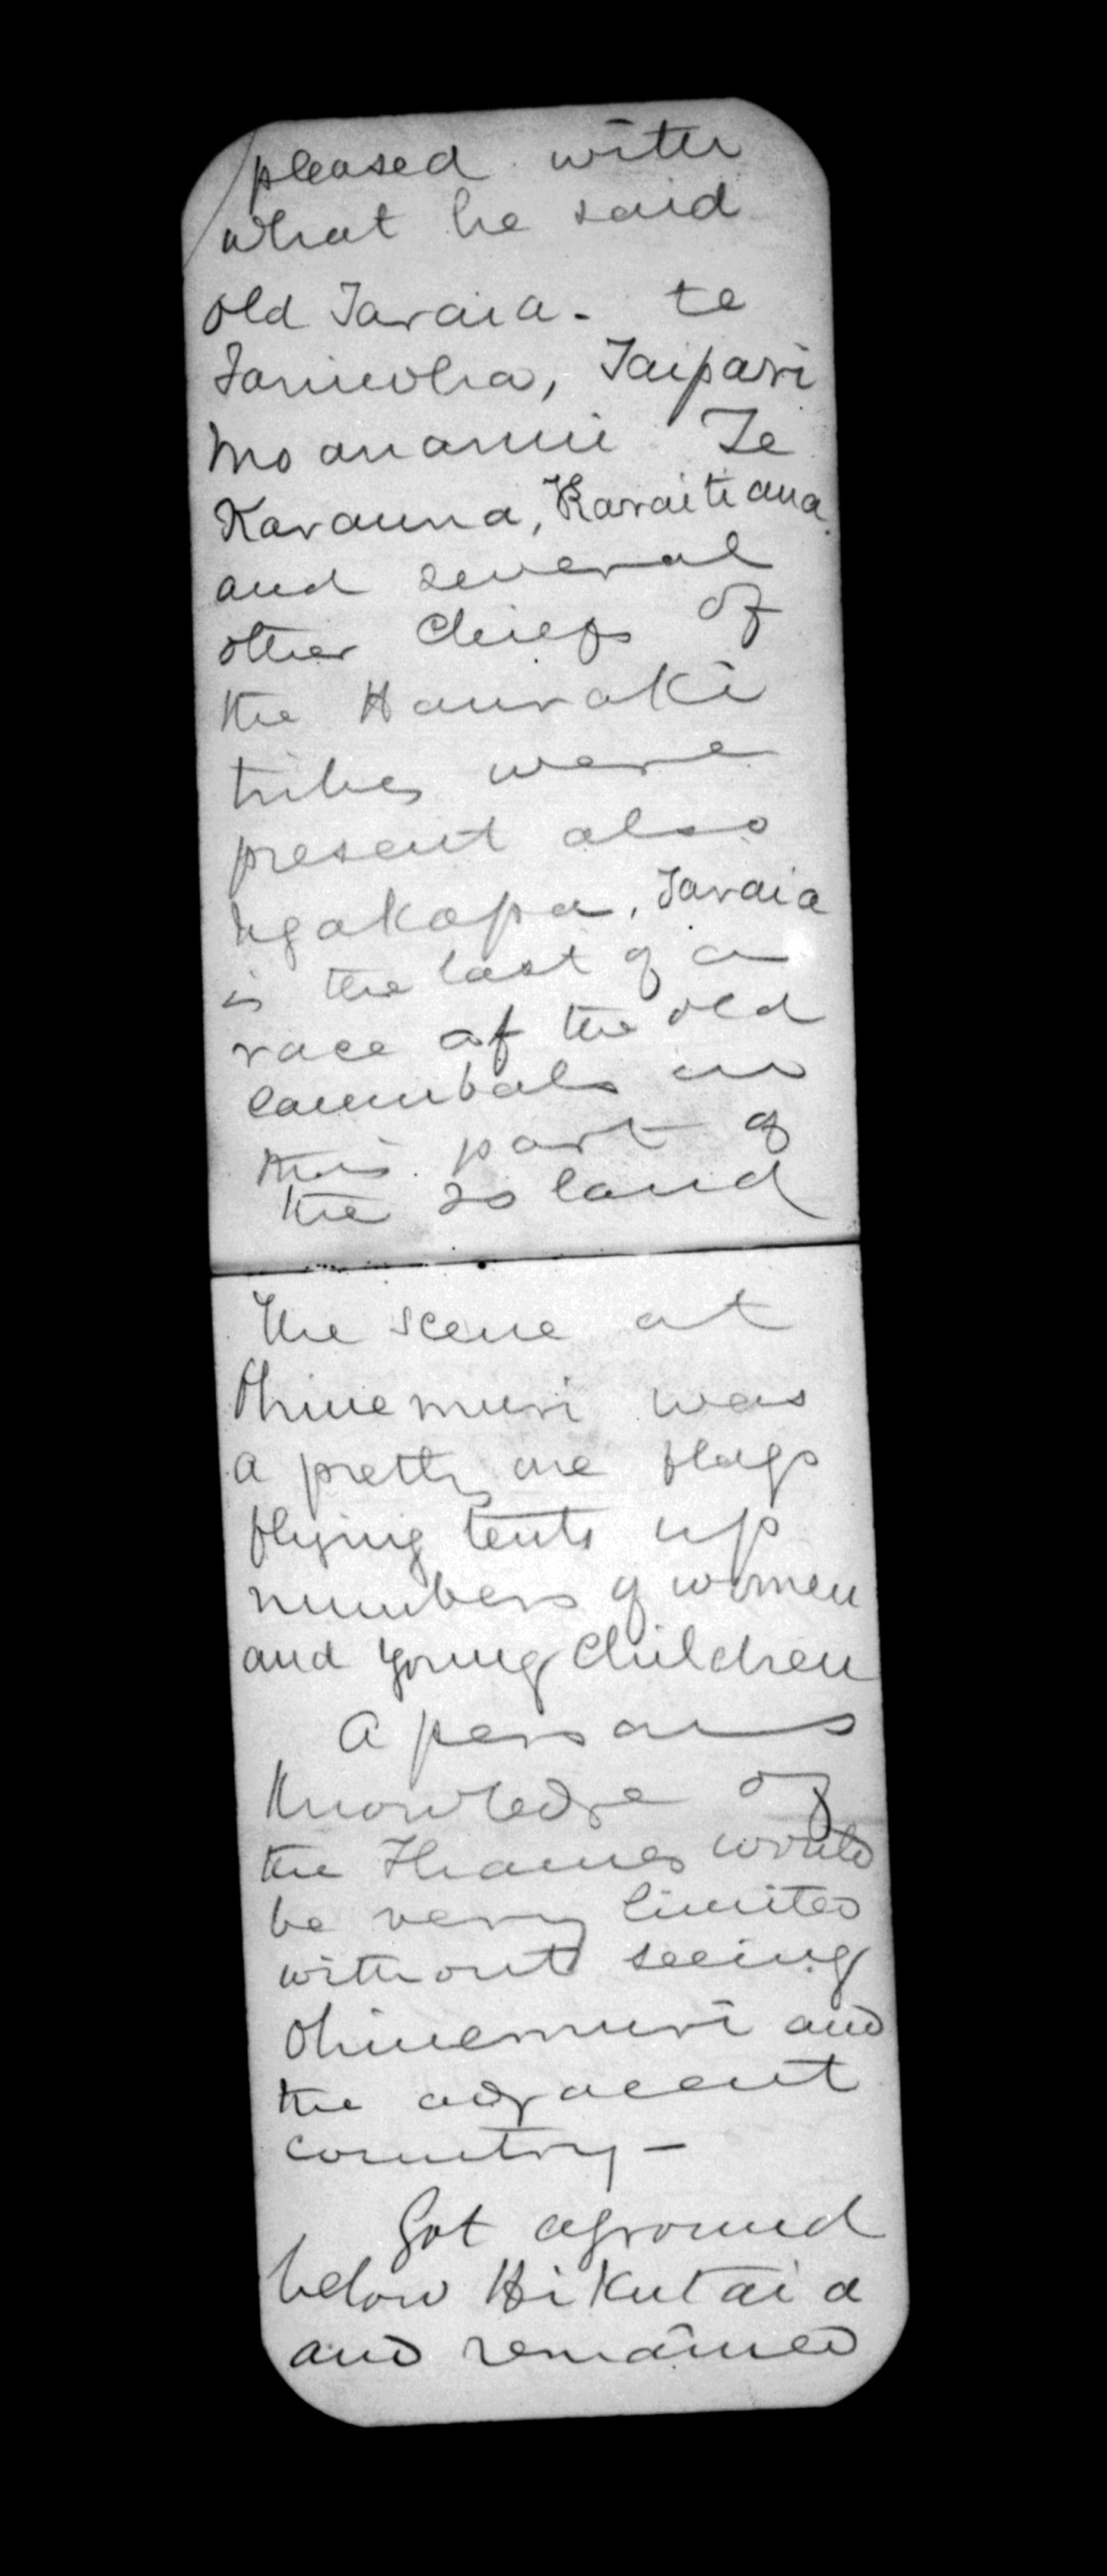 pleased with
what he said
Old Taraia - te
Taniwha, Taipari
Moananui Te
Karauna, Karaitiana
and several
other Chiefs of
the Hauraki
tribes were
present also
Ngakapa, Taraia
is the last of a
race of the old
Cannibals in
this part of
the Island
The scene at
Ohinemuri was
a pretty one flags
flying tents up
numbers of women
and young Children
A persons
Knowledge of
the Thames would
be very limited
without seeing
Ohinemuri and
the adjacent
country -
Got aground
below Hikutaia
and remained